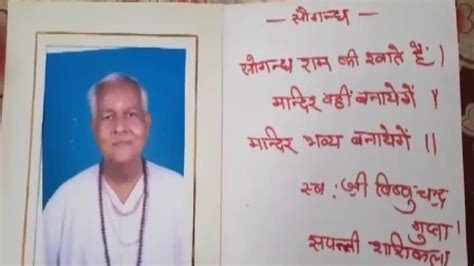 — सौगन्ध —
सौगन्ध राम की खाते हैं।
मन्दिर वहीं बनायेगें।
मन्दिर भव्य बनायेगें॥
स्व: श्री विष्णु चन्द्र
गुप्ता।
सपत्नी शशिकला